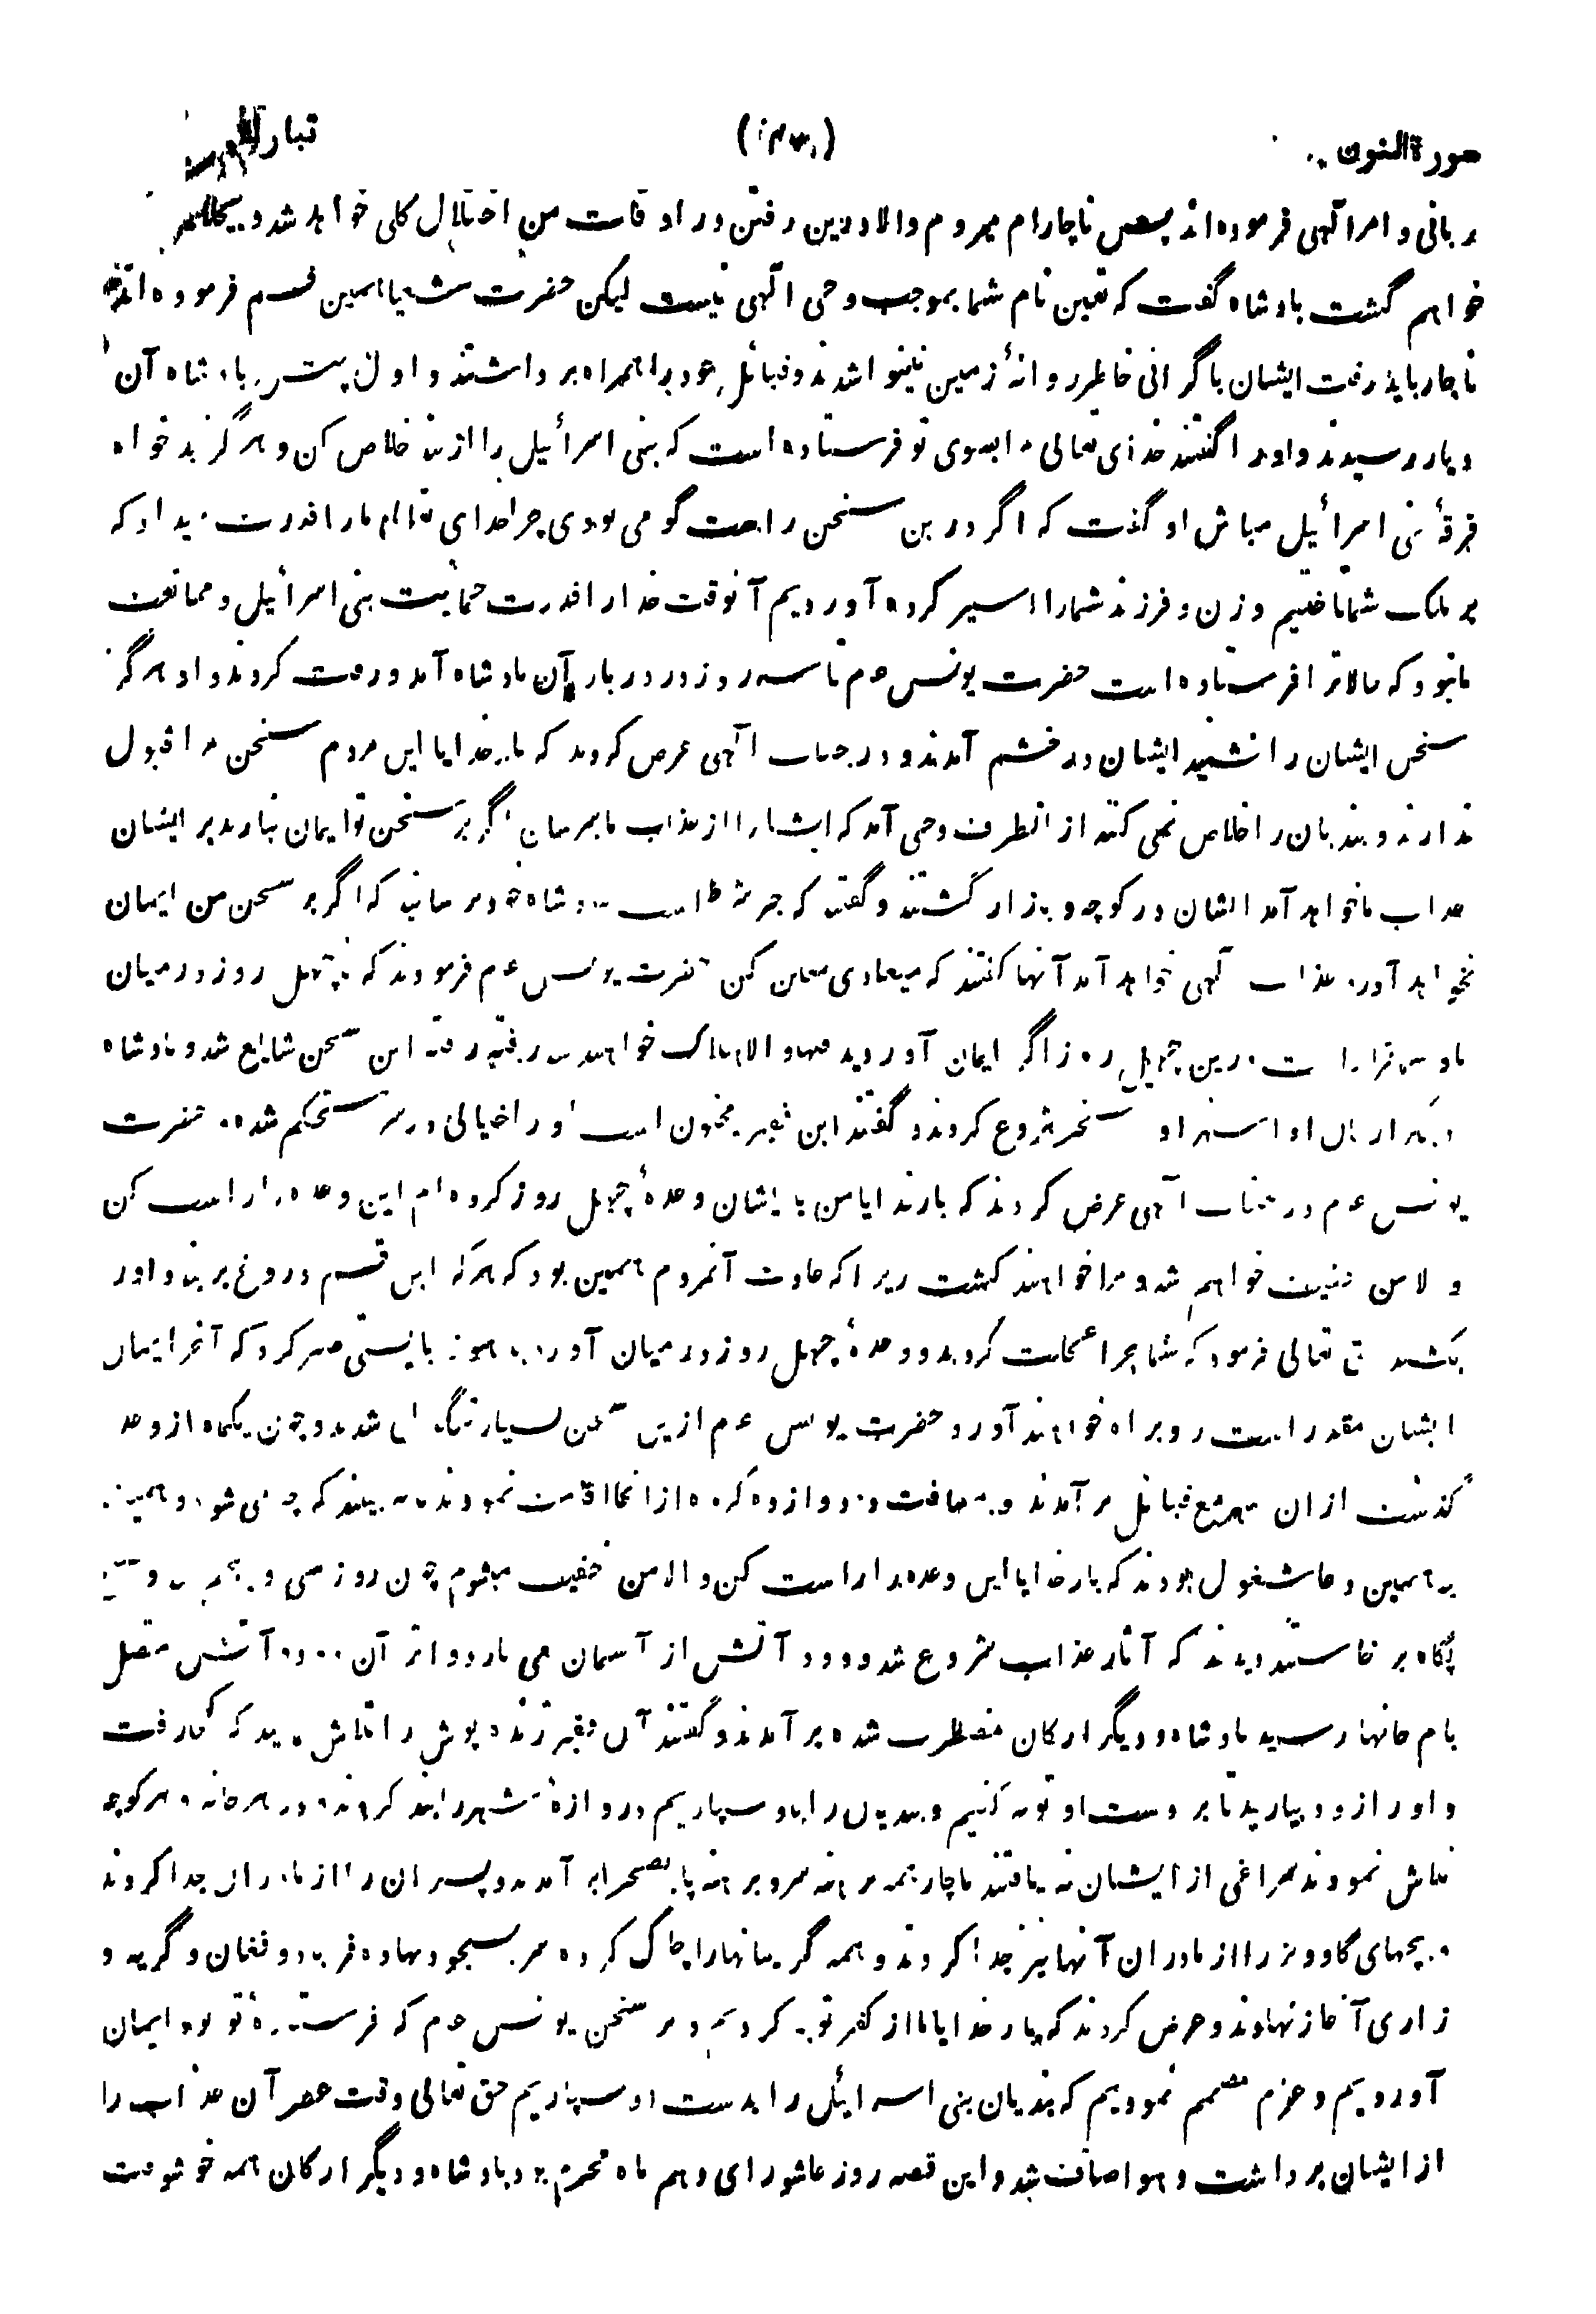 سورة النون
تبارك
ربانی و امر الهی فرموده اند پس ناچارام میروم والا درین رفتن در اوقات من اختلال کلی خواهد شد و
خواهم گشت بادشاه گفت که تعین نام شما بموجب وحی الهی نیست لیکن حضرت شعیا همین قسم فرموده اند
ناچار باید رفت ایشان با گرانی خاطر روانهٔ زمین نینوا شدند و قبائل خود را همراه برداشتند و اول پیش بادشاه آن
دیار رسیدند و او را گفتند خدای تعالی مرا بسوی تو فرستاده است که بنی اسرائیل را از بند خلاص کن و هرگز بدخواه
فرقهٔ بنی اسرائیل مباش او گفت که اگر درین سخن راست گو می بودی چرا خدای تعالی ما را قدرت میداد که
بر ملک شما تاختیم و زن و فرزند شما را اسیر کرده آوردیم آنوقت خدا را قدرت حمایت بنی اسرائیل و ممانعت
ما نبود که حالا ترا فرستاده است حضرت یونس عم تا سه روز در دربار آن بادشاه آمد و رفت کردند و او هرگز
سخن ایشان را نشنید ایشان در خشم آمدند و در جناب الهی عرض کردند که بار خدایا این مردم سخن مرا قبول
ندارند و بندیان را خلاص نمی کنند از انطرف وحی آمد که ایشان را از عذاب ما بترسان اگر بر سخن تو ایمان نیارند بر ایشان
عذاب ما خواهد آمد ایشان در کوچه و بازار گشتند و گفتند که است بادشاه خود برسانید که اگر بر سخن من ایمان
نخواهد آورد عذاب الهی خواهد آمد آنها گفتند که میعادی معین کن حضرت یونس عم فرمودند که چهل روز در میان
ما و شما قرار است درین چهل روز اگر ایمان آوردید فبها والا هلاک خواهید شد رفته رفته این سخن شایع شد و بادشاه
و ارکان او استهزاء و تمسخر شروع کردند و گفتند این فقیر مجنون است او را خیالی در سر مستحکم شده حضرت
یونس عم در جناب الهی عرض کردند که بار خدایا من با ایشان وعدهٔ چهل روز کرده ام این وعده مرا راست کن
والا من خفیف خواهم شد و مرا خواهند کشت زیرا که عادت آنمردم همین بود که هر که این قسم دروغ بربندد او را
بکشند حق تعالی فرمود که شما چرا عجلت کردید و وعدهٔ چهل روز در میان آوردید هنوز بایستی صبر کرد که آخر ایمان
ایشان مقدر است رو براه خواهند آورد و حضرت یونس عم ازین سخن بسیار تنگدل شدند و چون یکماه از وعده
گذشت از ان شهر مع قبائل بر آمدند و بمسافت دوازده کروه از انجا اقامت نمودند تا به بینند که چه می شود و همیشه
به همین دعا مشغول بودند که بار خدایا این وعده مرا راست کن والا من خفیف میشوم چون روز سی و پنجم
پگاه برخاستند دیدند که آثار عذاب شروع شد و دود آتش از آسمان می بارد و اثر آن دود و آتش متصل
بام خانها رسید بادشاه و دیگر ارکان مضطرب شده بر آمدند و گفتند آن فقیر ژنده پوش را تلاش کنید که کجا رفت
و او را زود بیارید تا بر دست او توبه کنیم و بندیان را باو سپاریم دروازهٔ شهر را بند کردند و در هر خانه و هر کوچه
تلاش نمودند سراغی از ایشان نه یافتند ناچار همه برهنه سر و برهنه پا بصحرا بر آمدند و پسران را از مادران جدا کردند
و بچهای گاو و بز را از مادران آنها نیز جدا کردند و همه گریبانها را چاک کرده سر بسجود نهاده فریاد و فغان و گریه و
زاری آغاز نهادند و عرض کردند که بار خدایا ما از کفر توبه کردیم و بر سخن یونس عم که فرستادهٔ تو بود ایمان
آوردیم و عزم مصمم نمودیم که بندیان بنی اسرائیل را بدست او سپاریم حق تعالی وقت عصر آن عذاب را
از ایشان برداشت و هوا صاف شد و این قصه روز عاشورای دهم ماه محرم بود بادشاه و دیگر ارکان همه خوشوقت